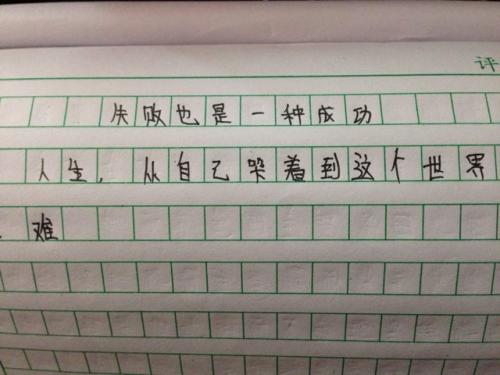 评
失败也是一种成功
人生，从自己哭着到这个世界
难